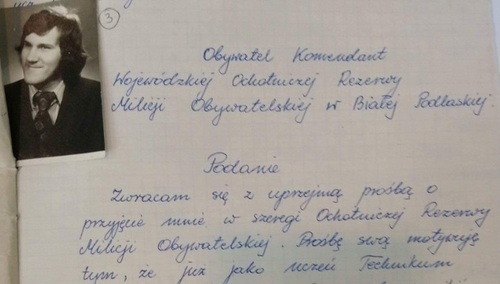 3
Obywatel Komendant
Wojewódzkiej Ochotniczej Rezerwy
Milicji Obywatelskiej w Białej Podlaskiej
Podanie
Zwracam się z uprzejmą prośbą o
przyjęcie mnie w szeregi Ochotniczej Rezerwy
Milicji Obywatelskiej. Prośbę swą motywuję
tym, że już jako uczeń Technikum